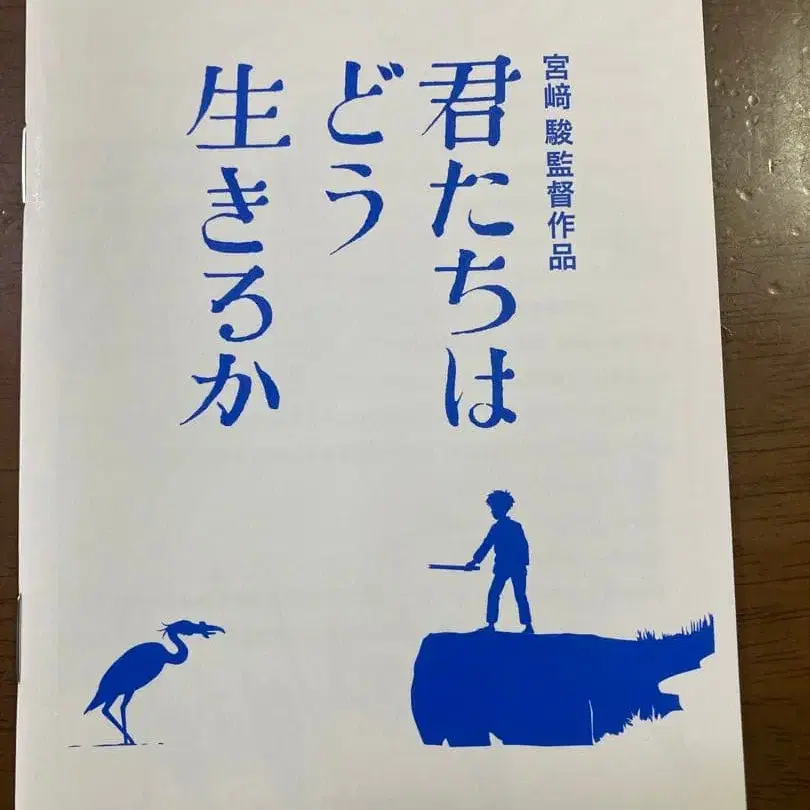 宮﨑 駿監督作品
君たちは
どう
生きるか